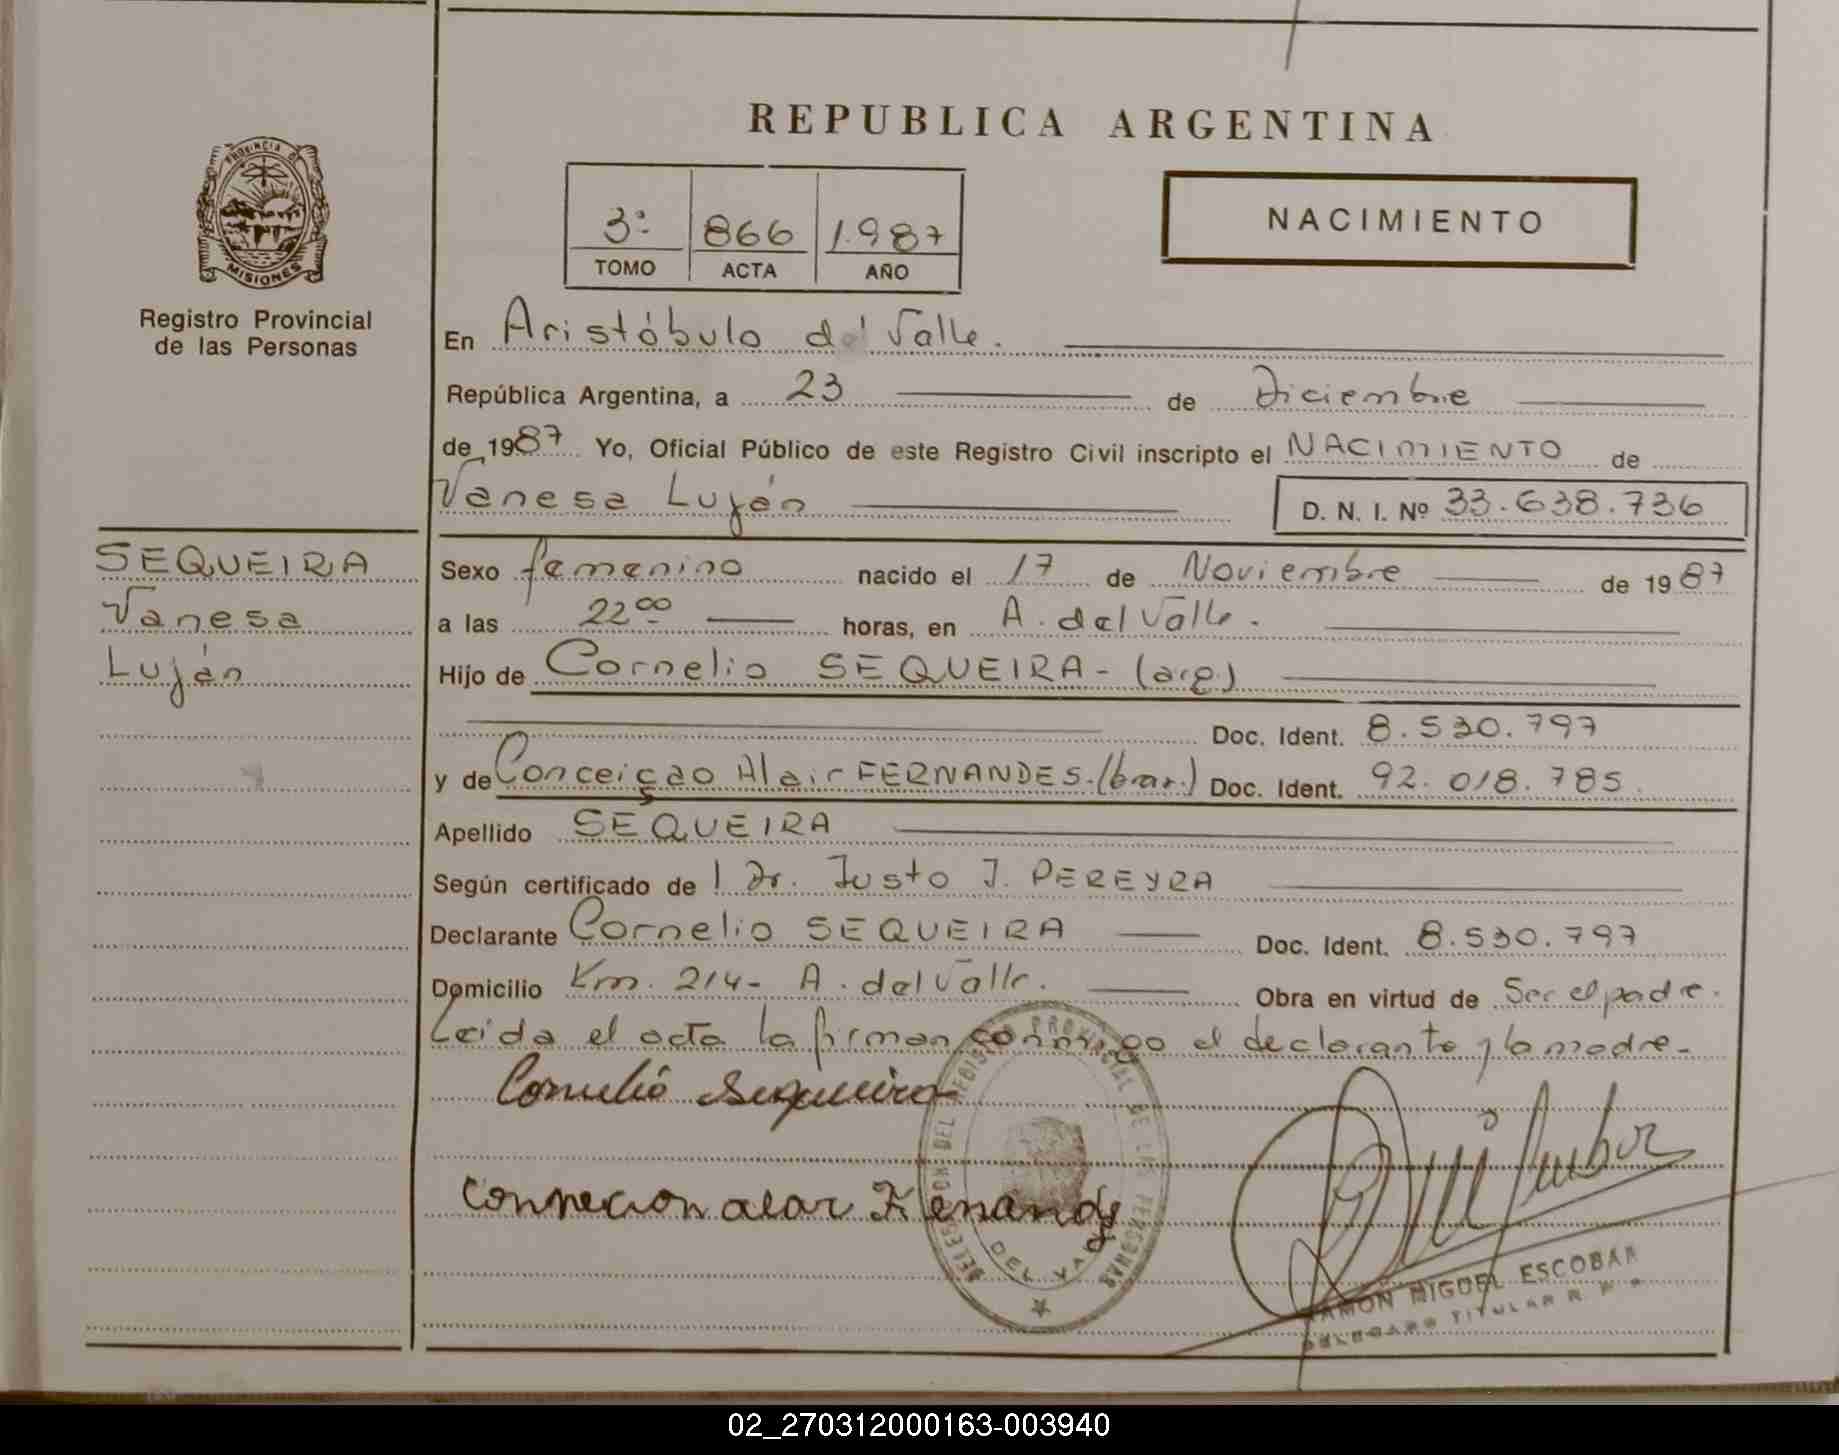 REPUBLICA ARGENTINA
PROVINCIA DE
MISIONES
Registro Provincial
de las Personas
3º 866 1.987
TOMO ACTA AÑO
NACIMIENTO
En Aristóbulo del Valle.
República Argentina, a 23 de Diciembre
de 1987 Yo, Oficial Público de este Registro Civil inscripto el NACIMIENTO de
Vanesa Luján D. N. I. Nº 33.638.736
SEQUEIRA
Vanesa
Luján
Sexo femenino nacido el 17 de Noviembre de 1987
a las 22⁰⁰ horas, en A. del Valle.
Hijo de Cornelio SEQUEIRA - (arg)
Doc. Ident. 8.530.797
y de Conceiçao Alair FERNANDES. (bras.) Doc. Ident. 92.018.785
Apellido SEQUEIRA
Según certificado de l Dr. Justo J. PEREYRA
Declarante Cornelio SEQUEIRA Doc. Ident. 8.530.797
Domicilio Km. 214 - A. del Valle. Obra en virtud de Ser el padre.
Leida el acta la firman conmigo el declarante y la madre -
Cornelio Sequeira
DELEGACION DEL REGISTRO PROVINCIAL DE LAS PERSONAS
DEL VALLE
RAMON MIGUEL ESCOBAR
DELEGADO TITULAR R. P. P.
02_270312000163-003940